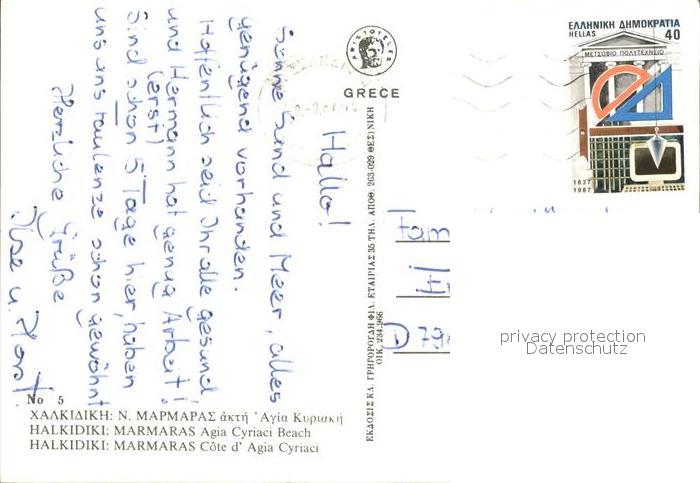 ΕΛΛΗΝΙΚΗ ΔΗΜΟΚΡΑΤΙΑ
HELLAS 40
ΜΕΤΣΟΒΙΟ ΠΟΛΥΤΕΧΝΕΙΟ
1837
1987
ARISTOTELES
GRECE
Hallo!
Sonne Sand und Meer, alles
genügend vorhanden.
Hoffentlich seid Ihr alle gesund
und Hermann hat genug Arbeit!
(erst)
Sind schon 5 Tage hier, haben
uns ans faulenze schon gewöhnt
Herzliche Grüße
Ilse u. Horst.
ΕΚΔΟΣΙΣ ΚΛ. ΓΡΗΓΟΡΟΥΔΗ ΦΙΛ. ΕΤΑΙΡΙΑΣ 35 ΤΗΛ. ΑΠΟΘ. 263-029 ΘΕΣ)ΝΙΚΗ
ΟΙΚ. 234-966
Fam
D 79
privacy protection
Datenschutz
No 5
ΧΑΛΚΙΔΙΚΗ: Ν. ΜΑΡΜΑΡΑΣ ἀκτή Ἁγία Κυριακή
HALKIDIKI: MARMARAS Agia Cyriaci Beach
HALKIDIKI: MARMARAS Côte d' Agia Cyriaci